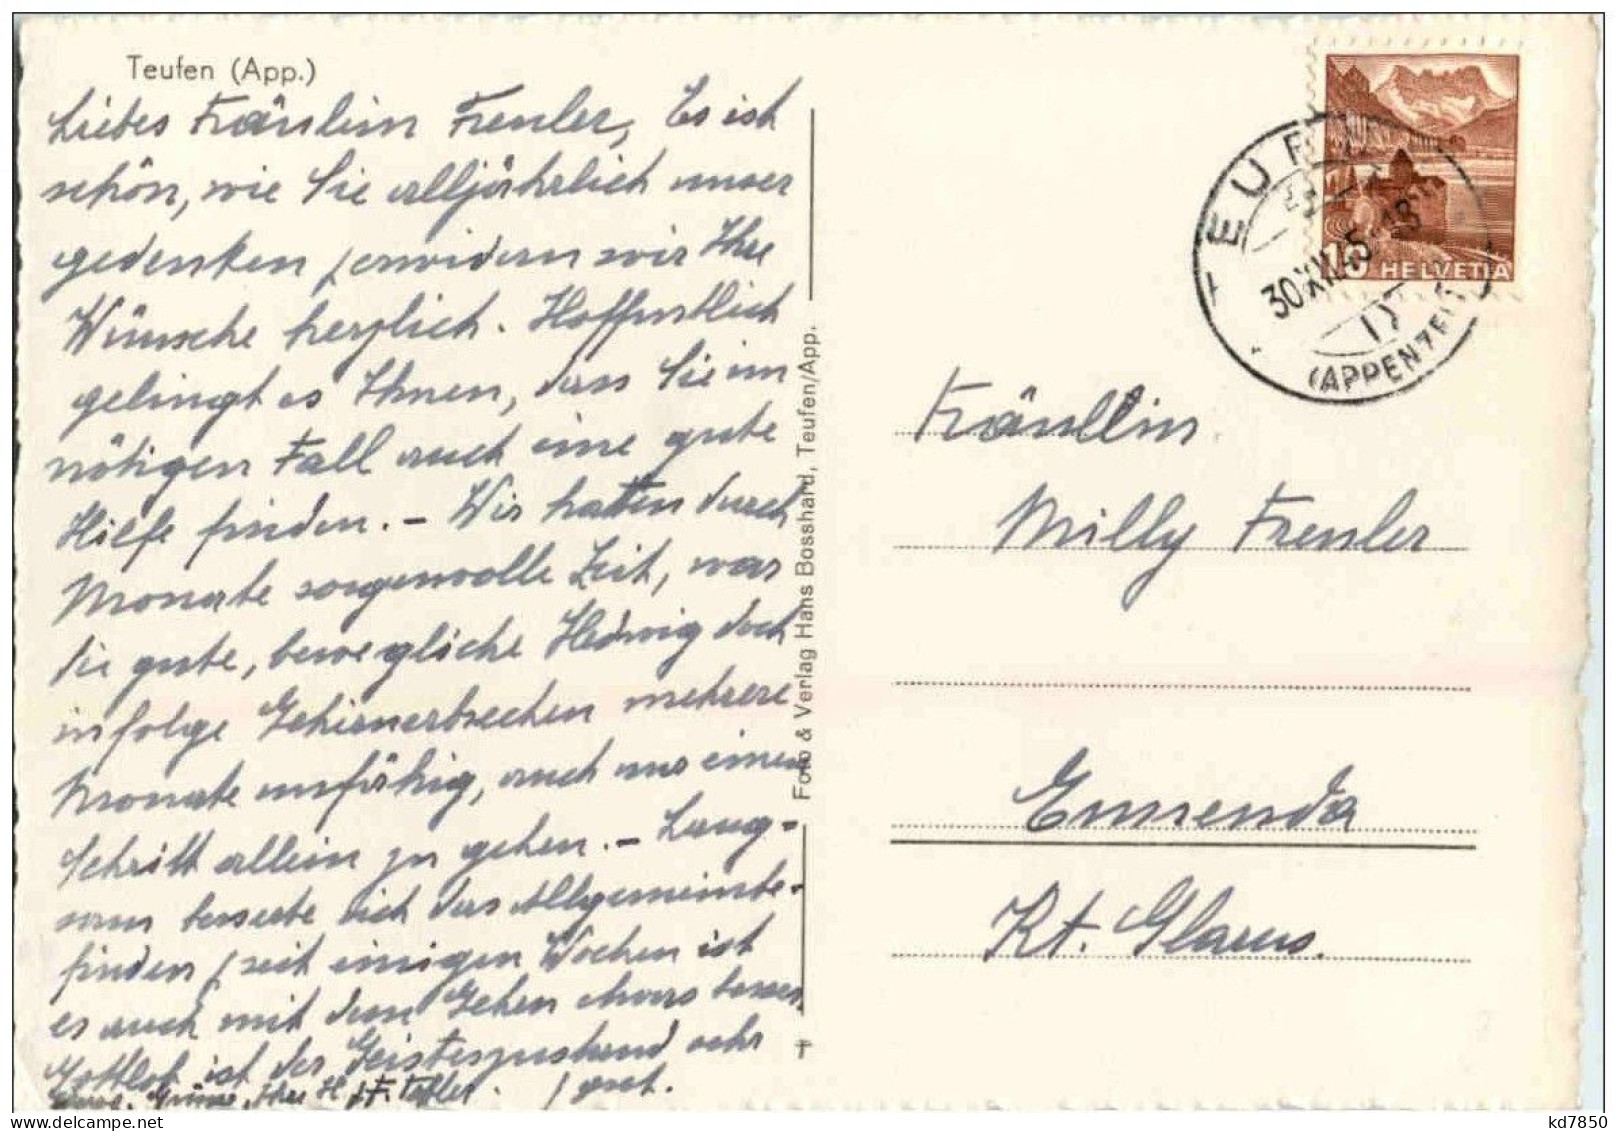 Teufen (App.)
Liebes Fräulein Freuler, Es ist
schön, wie Sie alljährlich unser
gedenken, erwidern wir Ihre
Wünsche herzlich. Hoffentlich
gelingt es Ihnen, dass Sie im
nötigen Fall auch eine gute
Hilfe finden. – Wir hatten durch
Monate sorgenvolle Zeit, war
die gute, bewegliche Hedwig doch
infolge Gehirnerbrechen mehrere
Monate unfähig, auch nur einen
Schritt allein zu gehen. – Lang-
sam besserte sich das Allgemeinbe-
finden, seit einigen Wochen ist
es auch mit dem Gehen etwas besser,
Gottlob ist der Geisteszustand sehr
gut.
Grüsse, Ihre H. & F.
Foto & Verlag Hans Bosshard, Teufen/App.
HELVETIA
10
TEUFEN
30.XII.45.-18
(APPENZELL)
Fräullin
Milly Freuler
Ennenda
Kt. Glarus.
kd7850